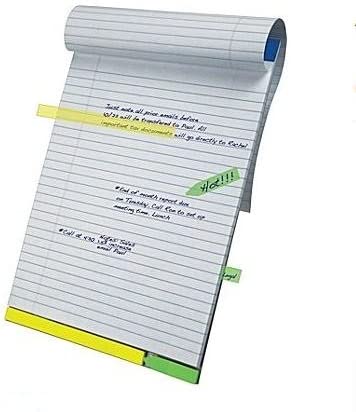 Just note all price emails before
10/23 will be transfered to Paul. All
important tax documents will go directly to Rachel
Hot!!!
*End of month report due
on Tuesday. Call Ron to set up
meeting time. Lunch
*Call at 4:30
email Paul